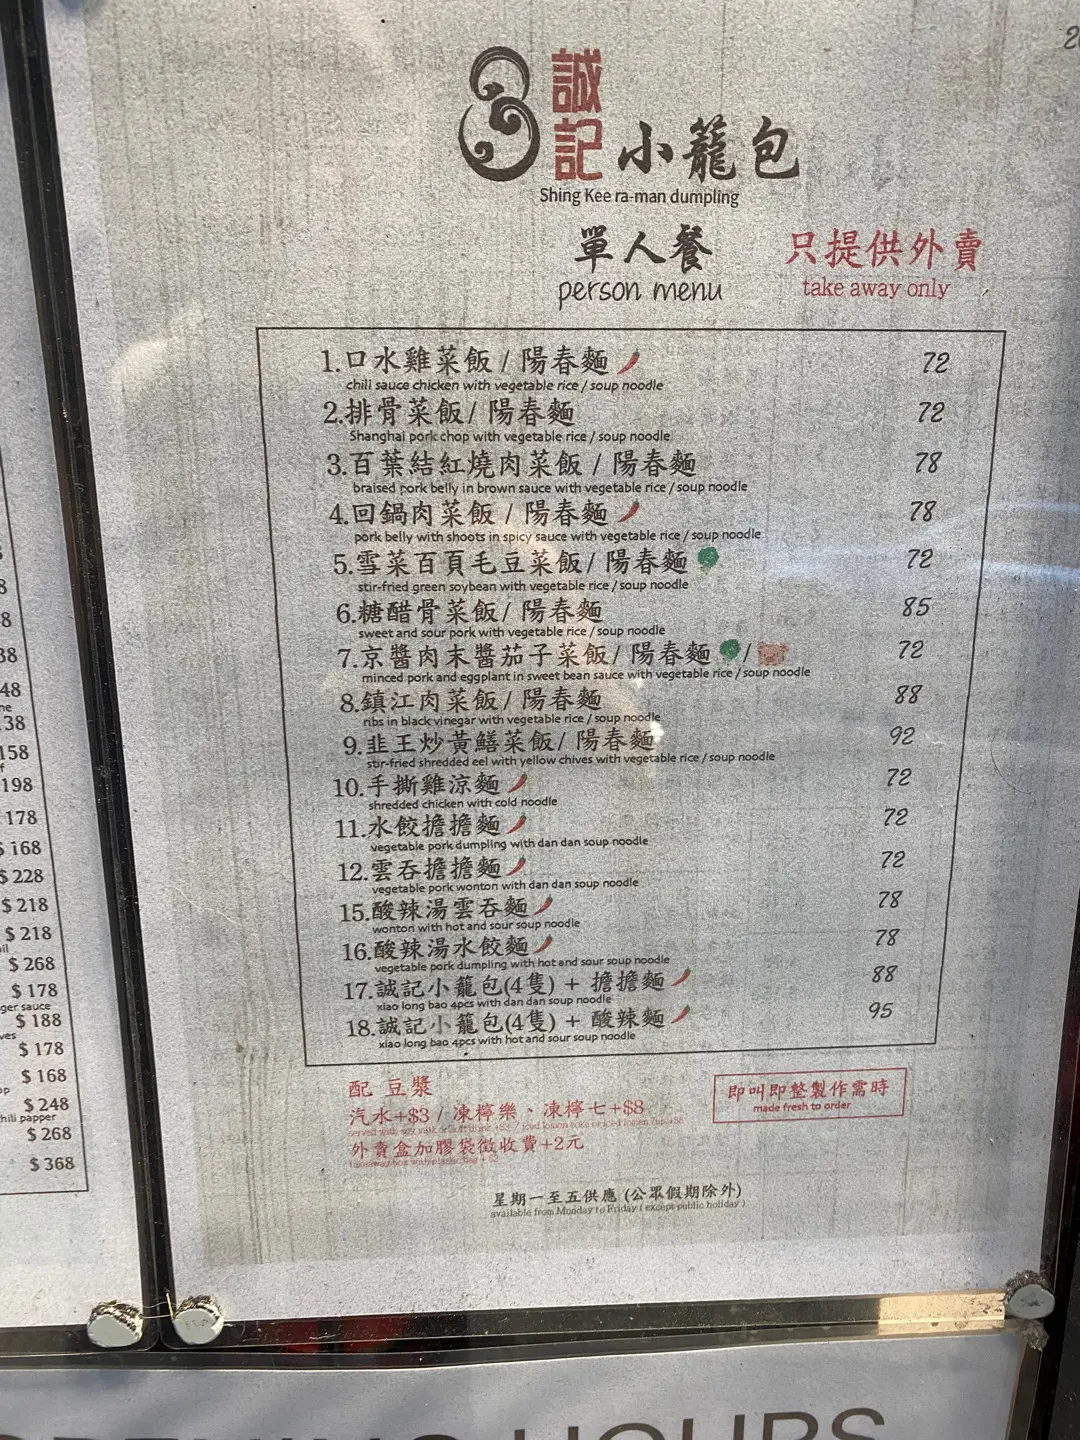 誠記 小籠包
Shing Kee ra-man dumpling
單人餐
person menu
只提供外賣
take away only
1.口水雞菜飯 / 陽春麵 72
chili sauce chicken with vegetable rice / soup noodle
2.排骨菜飯/ 陽春麵 72
Shanghai pork chop with vegetable rice / soup noodle
3.百葉結紅燒肉菜飯 / 陽春麵 78
braised pork belly in brown sauce with vegetable rice / soup noodle
4.回鍋肉菜飯 / 陽春麵 78
pork belly with shoots in spicy sauce with vegetable rice / soup noodle
5.雪菜百頁毛豆菜飯/ 陽春麵 72
stir-fried green soybean with vegetable rice / soup noodle
6.糖醋骨菜飯/ 陽春麵 85
sweet and sour pork with vegetable rice / soup noodle
7.京醬肉末醬茄子菜飯/ 陽春麵 / 72
minced pork and eggplant in sweet bean sauce with vegetable rice / soup noodle
8.鎮江肉菜飯 / 陽春麵 88
ribs in black vinegar with vegetable rice / soup noodle
9.韭王炒黃鱔菜飯/ 陽春麵 92
stir-fried shredded eel with yellow chives with vegetable rice / soup noodle
10.手撕雞涼麵 72
shredded chicken with cold noodle
11.水餃擔擔麵 72
vegetable pork dumpling with dan dan soup noodle
12.雲吞擔擔麵 72
vegetable pork wonton with dan dan soup noodle
15.酸辣湯雲吞麵 78
wonton with hot and sour soup noodle
16.酸辣湯水餃麵 78
vegetable pork dumpling with hot and sour soup noodle
17.誠記小籠包(4隻) + 擔擔麵 88
xiao long bao 4pcs with dan dan soup noodle
18.誠記小籠包(4隻) + 酸辣麵 95
xiao long bao 4pcs with hot and sour soup noodle
配 豆漿
汽水+$3 / 凍檸樂、凍檸七+$8
外賣盒加膠袋徵收費+2元
即叫即整製作需時
made fresh to order
星期一至五供應 (公眾假期除外)
available from Monday to Friday ( except public holiday )
38
48
138
158
198
178
$ 168
$ 228
$ 218
$ 218
$ 268
$ 178
$ 188
$ 178
$ 168
$ 248
$ 268
$ 368
HOURS